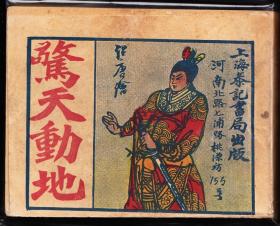 上海泰記書局出版
河南北路七浦路桃源坊155号
驚天動地